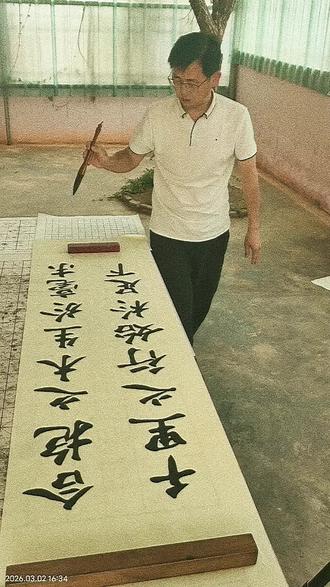 合抱之木生於毫末
千里之行始於足下
2026.03.02 16:34